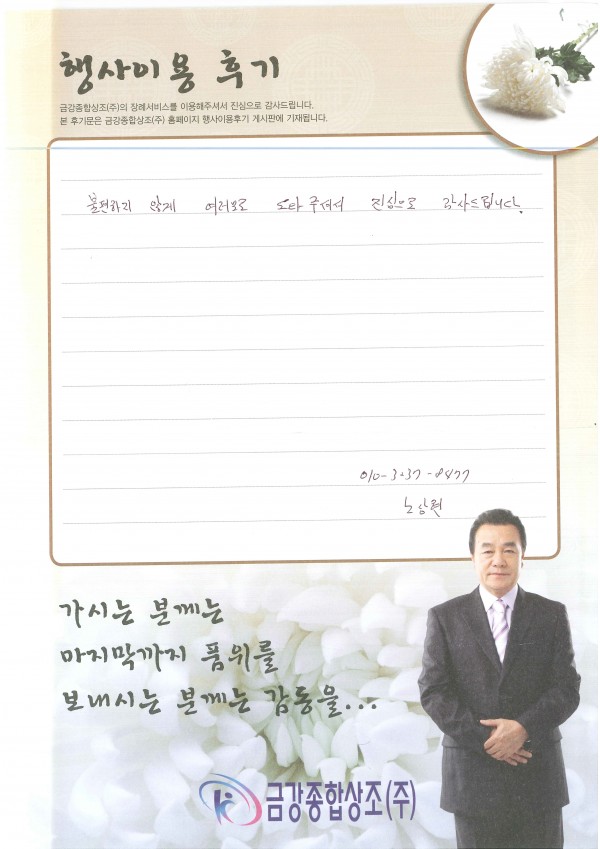 행사이용 후기
금강종합상조(주)의 장례서비스를 이용해주셔서 진심으로 감사드립니다.
본 후기문은 금강종합상조(주) 홈페이지 행사이용후기 게시판에 기재됩니다.
불편하지 않게 여러모로 도와 주셔서 진심으로 감사드립니다.
가시는 분께는
마지막까지 품위를
보내시는 분께는 감동을...
금강종합상조(주)